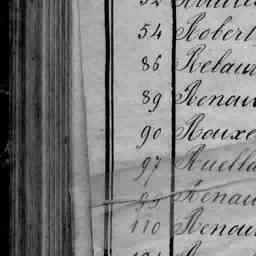 54 Robert
86 Relau
89 Renau
90 Rouxe
97 Ruella
Renau
110 Renau